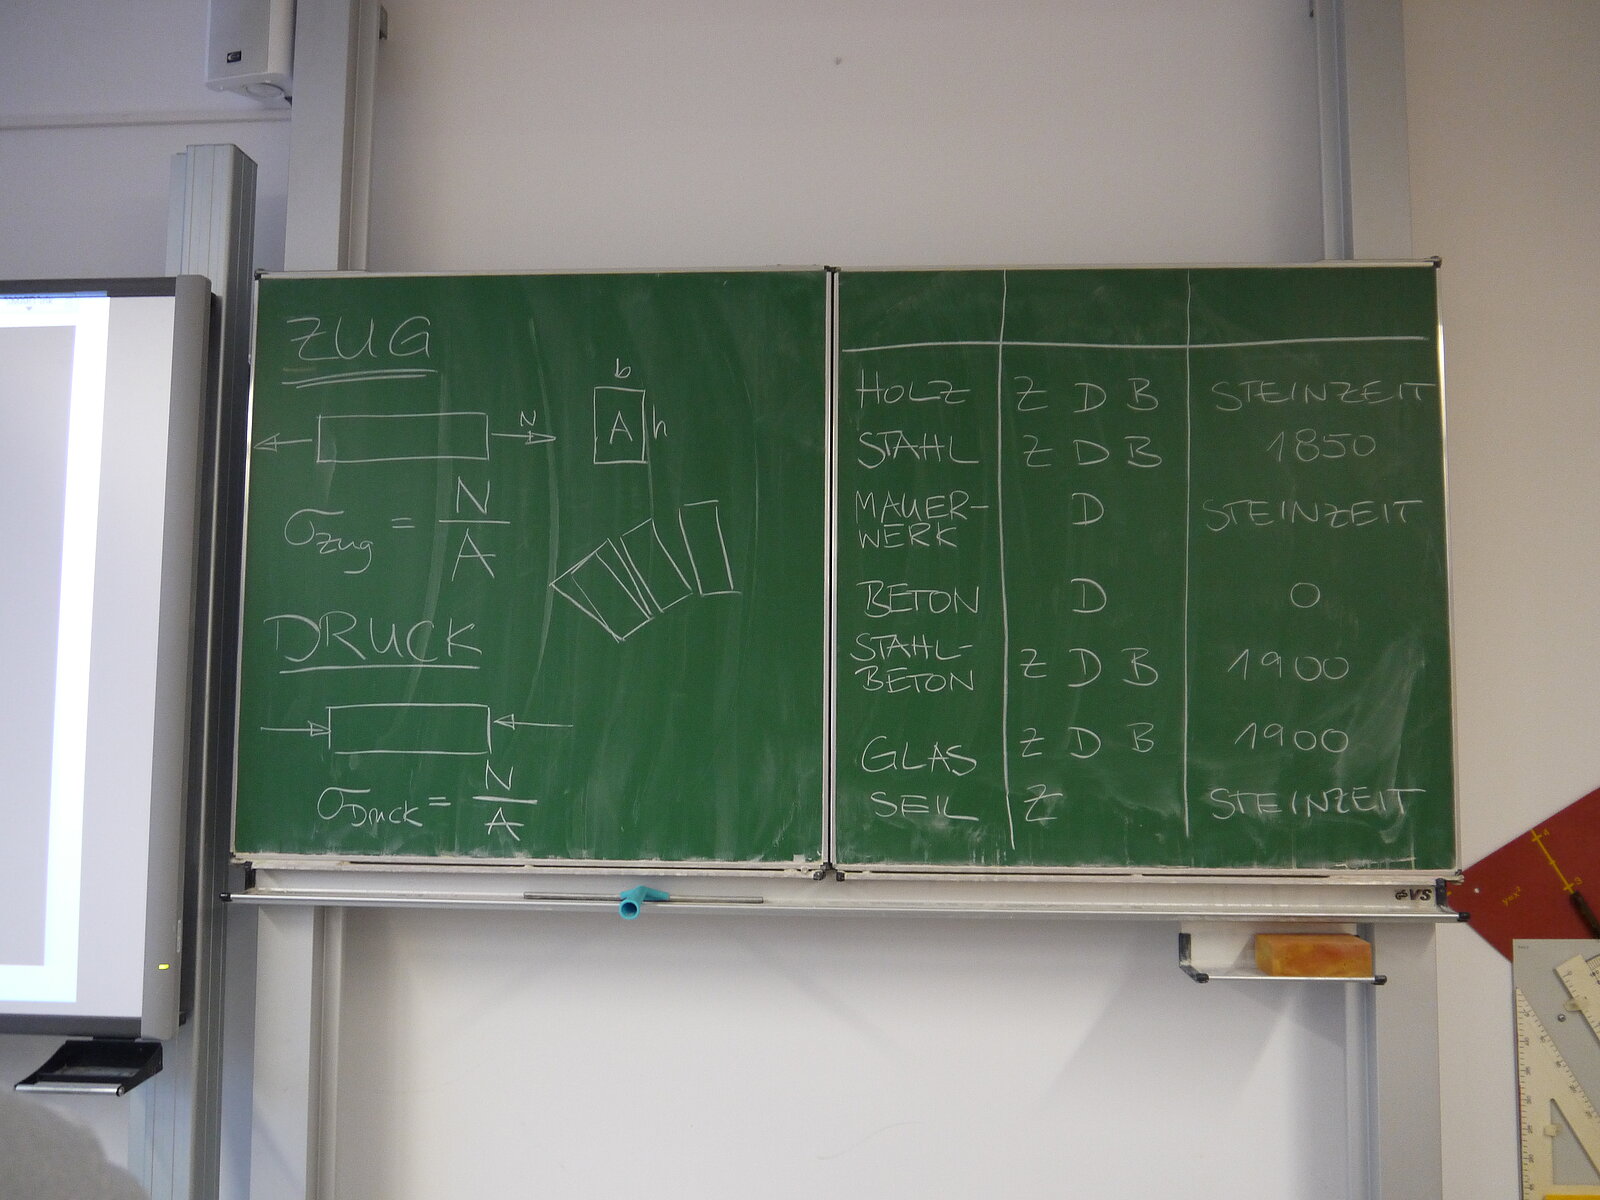 ZUG
N
b
A h
σZug = N/A
DRUCK
σDruck = N/A
HOLZ Z D B STEINZEIT
STAHL Z D B 1850
MAUER-
WERK D STEINZEIT
BETON D 0
STAHL-
BETON Z D B 1900
GLAS Z D B 1900
SEIL Z STEINZEIT
VS
y=x²